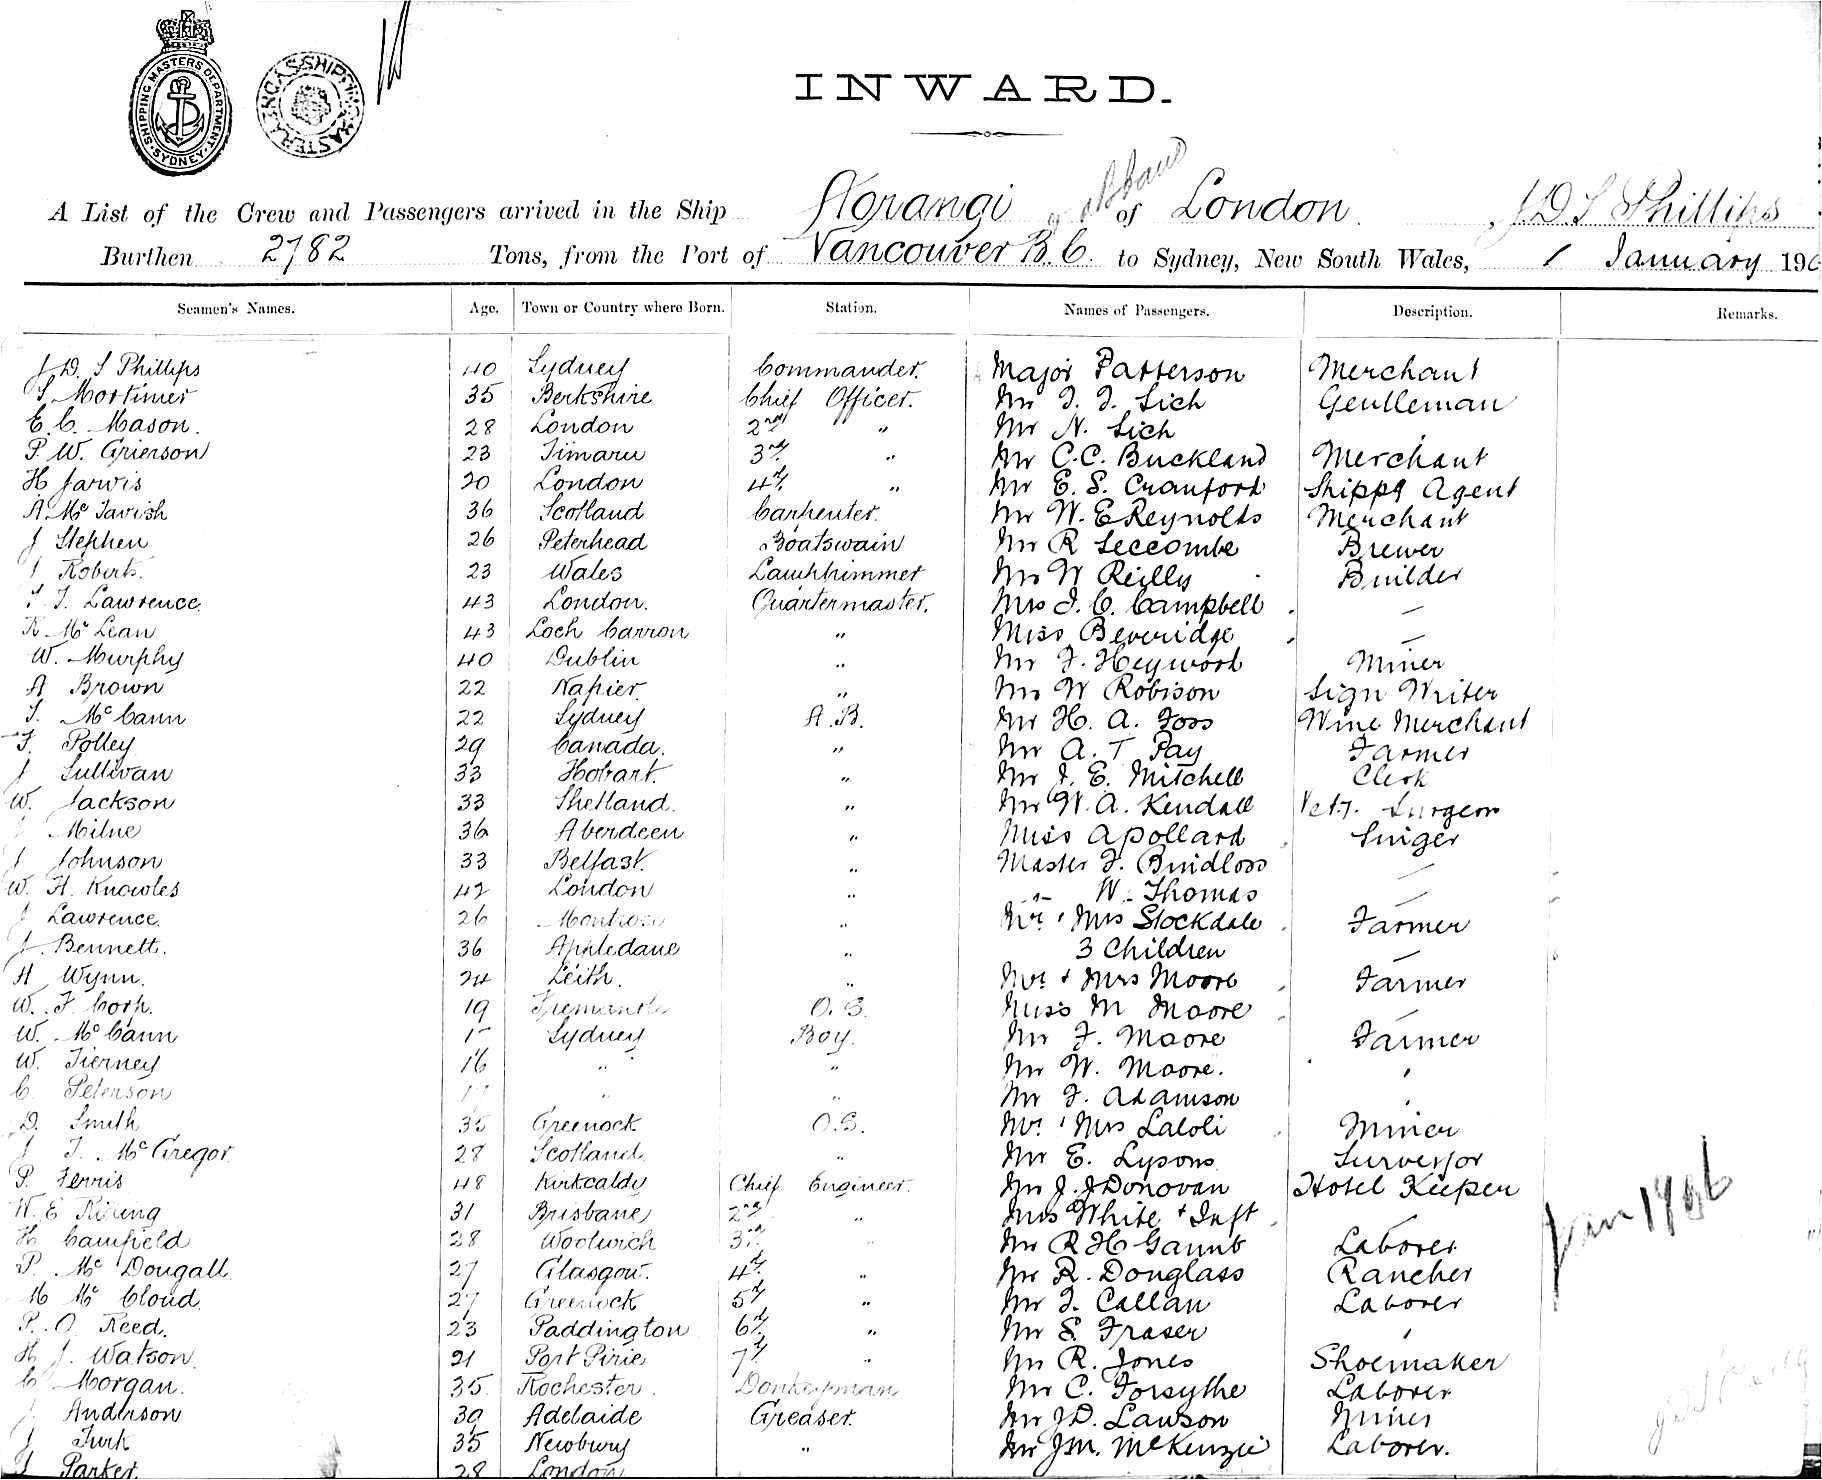 SHIPPING MASTERS DEPARTMENT. SYDNEY.
INWARD.
A List of the Crew and Passengers arrived in the Ship Aorangi of London. J D S Phillips
Burthen 2782 Tons, from the Port of Vancouver B.C. to Sydney, New South Wales, 1 January 190
Seamen's Names. Age. Town or Country where Born. Station. Names of Passengers. Description. Remarks.
J D. S Phillips 40 Sydney Commander. Major Patterson Merchant
S Mortimer 35 Berkshire Chief Officer. Mr J. J. Sich Gentleman
E. C. Mason. 28 London 2nd " Mr N. Sich
P. W. Grierson 23 Timaru 3rd " Mr C. C. Buckland Merchant
H Jarvis 20 London 4th " Mr E. S. Cranford Shippg Agent
A Mc Tavish 36 Scotland Carpenter. Mr W. E Reynolds Merchant
J Stephen 26 Peterhead Boatswain Mr R Seccombe Brewer
J Roberts. 23 Wales Lamptrimmer Mr W Reilly Builder
T. Lawrence. 43 London. Quartermaster. Mrs J. C. Campbell —
K Mc Lean 43 Loch Carron " Miss Beveridge —
W. Murphy 40 Dublin " Mr F. Heywood Miner
A Brown 22 Napier. " Mr W Robison Sign Writer
T. Mc Cann 22 Sydney A.B. Mr H. A. Foss Wine Merchant
F. Polley 29 Canada. " Mr A. T Pay Farmer
J Sullivan 33 Hobart. " Mr J. E. Mitchell Clerk
W. Jackson 33 Shetland. " Mr W. A. Kendall Vety. Surgeon
J Milne 36 Aberdeen " Miss A Pollard Singer
J Johnson 33 Belfast. " Master F. Bindloss —
W. H. Knowles 42 London " " W. Thomas —
J Lawrence. 26 Montrose " Mr & Mrs Stockdale Farmer
J. Bennett. 36 Appledane " 3 Children —
H Wynn. 24 Leith. " Mr & Mrs Moore Farmer
W. F. Corp. 19 Fremantle O.S. Miss M Moore —
W. Mc Cann Sydney Boy. Mr F. Moore Farmer
W. Tierney 16 " " Mr W. Moore. "
C. Peterson 17 " " Mr F. Adamson "
D. Smith 35 Greenock O.S. Mr & Mrs Laloli Miner
J T. Mc Gregor 28 Scotland. " Mr E. Lysons Surveyor
P. Ferris 48 Kirkcaldy Chief Engineer. Mr J. J Donovan Hotel Keeper
W. E 31 Brisbane 2nd " Mrs White & Inft —
H Camfield 28 Woolwich 3rd " Mr R H Gaunt Laborer
P. Mc Dougall 27 Glasgow. 4th " Mr R. Douglass Rancher
M Mc Cloud. 27 Greenock 5th " Mr J. Callan Laborer
P. O. Reed. 23 Paddington 6th " Mr S. Fraser "
H J. Watson. 21 Port Pirie 7th " Mr R. Jones Shoemaker
C Morgan. 35 Rochester. Donkeyman Mr C. Forsythe Laborer
J. Anderson 39 Adelaide Greaser. Mr J D. Lawson Miner
J Turk 35 Newbury " Mr J M. McKenzie Laborer.
Parker. 28 London
Jan 1906